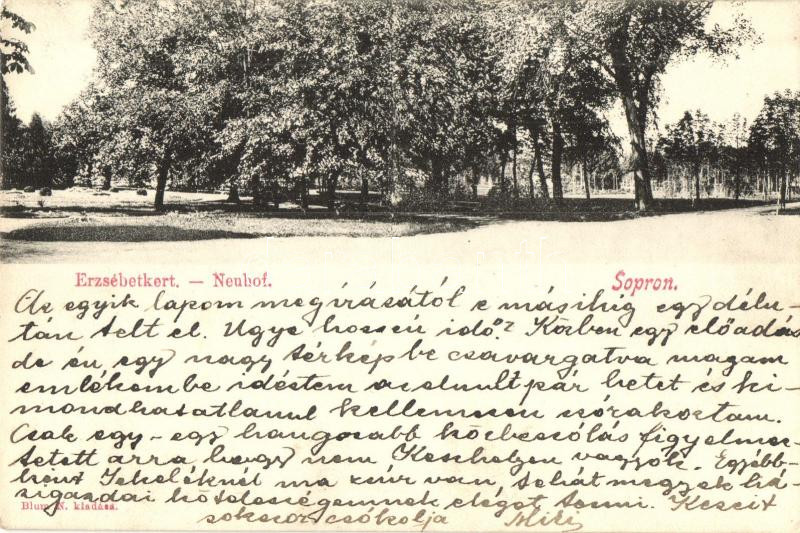 Erzsébetkert. — Neuhof.
Sopron.
Az egyik lapom megírásától a másikig egy délu-
tán telt el. Ugye hosszú idő? Közben egy előadás
de én egy nagy térképbe csavargatva magam
emlékembe idéztem az elmult pár hetet és ki-
mondhatatlanul kellemesen szórakoztam.
Csak egy-egy hangosabb közbeszólás figyelmez-
tetett arra hogy nem Keszthelyen vagyok. Egyébb-
ként ma zsúr van, tehát megyek há-
zigazdai kötelességemnek eleget tenni. Kezeit
sokszor csókolja Miki
Blum N. kiadása.